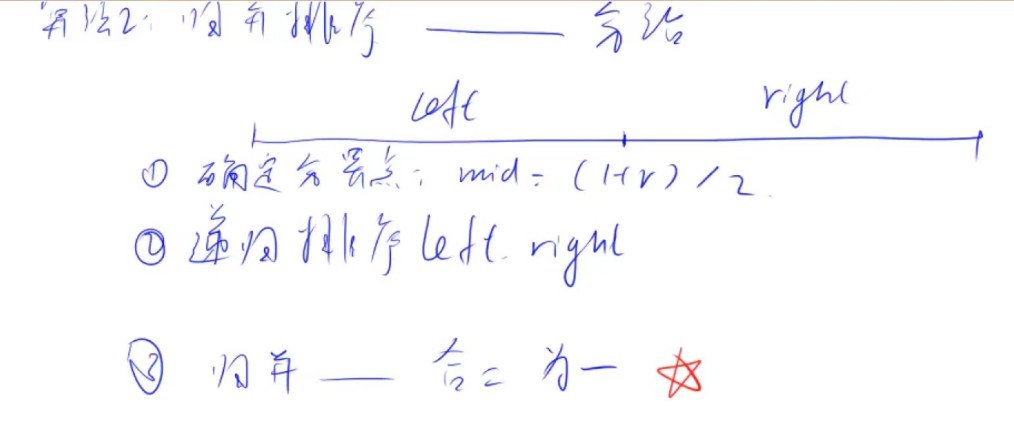 算法2：归并排序 —— 分治
left right
① 确定分界点：mid = (l+r)/2
② 递归排序left. right
③ 归并 —— 合二为一